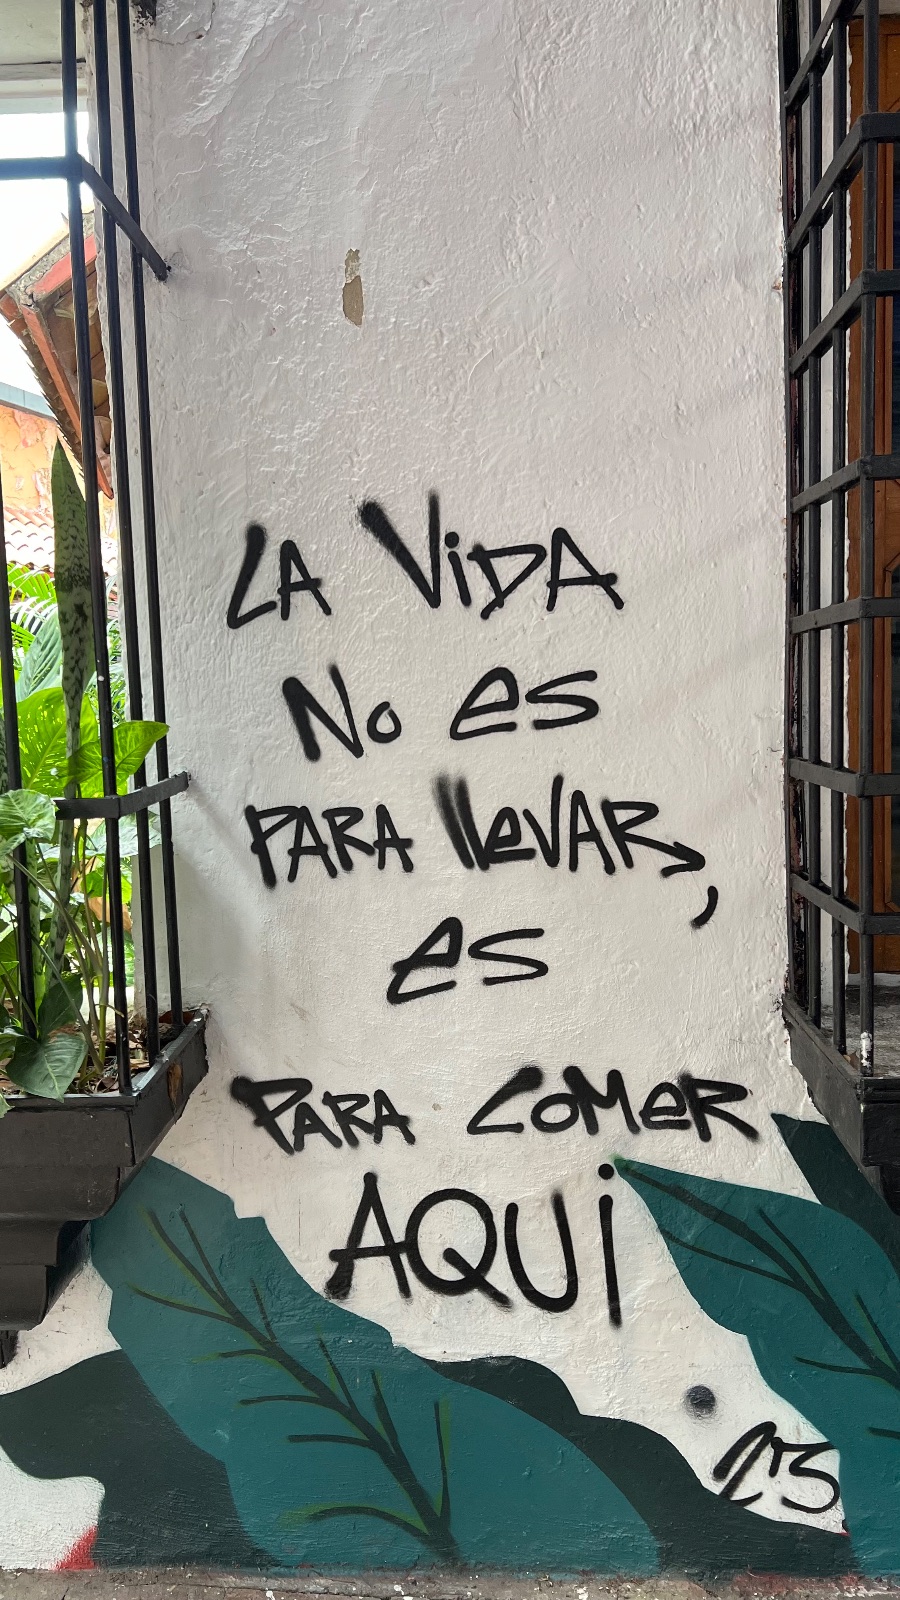 LA ViDA
No es
PARA llevAR,
es
PARA COMeR
AQUi
23